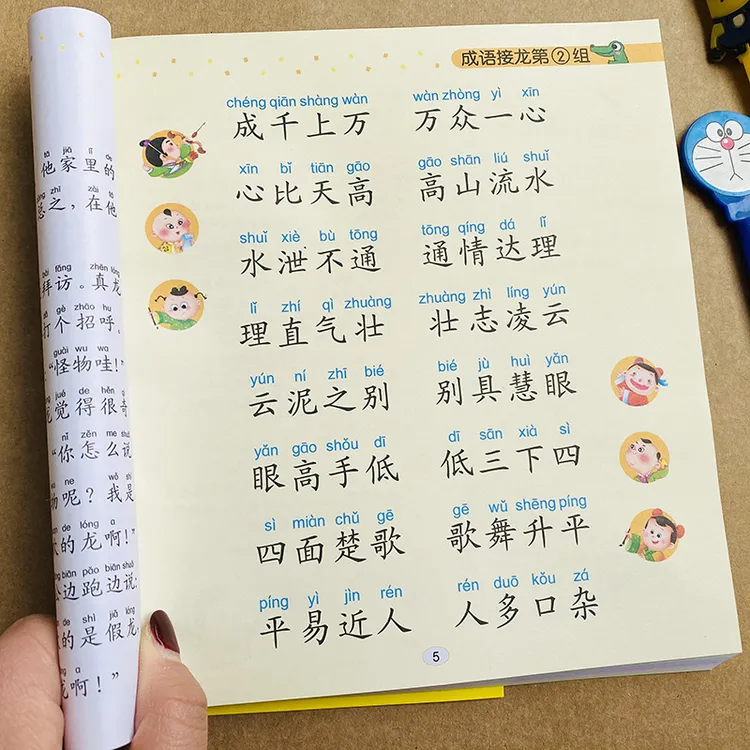 tā jiā lǐ de
他家里的
zhī zài tā
总之，在他
bài fǎng zhēn lóng
拜访。真龙
dǎ gè zhāo hu
打个招呼。
guài wu wa
“怪物哇！”
jué de hěn
觉得很奇
nǐ zěn me shuō
“你怎么说
ne wǒ shì
物呢？我是
de lóng a
的龙啊！”
biān pǎo biān shuō
边跑边说：
de shì jiǎ lóng
的是假龙
a
龙啊！”
成语接龙第②组
chéng qiān shàng wàn wàn zhòng yì xīn
成千上万 万众一心
xīn bǐ tiān gāo gāo shān liú shuǐ
心比天高 高山流水
shuǐ xiè bù tōng tōng qíng dá lǐ
水泄不通 通情达理
lǐ zhí qì zhuàng zhuàng zhì líng yún
理直气壮 壮志凌云
yún ní zhī bié bié jù huì yǎn
云泥之别 别具慧眼
yǎn gāo shǒu dī dī sān xià sì
眼高手低 低三下四
sì miàn chǔ gē gē wǔ shēng píng
四面楚歌 歌舞升平
píng yì jìn rén rén duō kǒu zá
平易近人 人多口杂
5